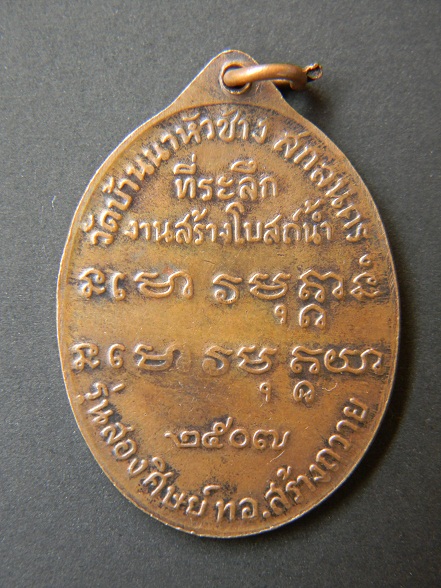 วัดบ้านนาหัวช้าง สกลนคร
ที่ระลึก
งานสร้างโบสถ์น้ำ
๒๕๐๗
รุ่นสองศิษย์ ทอ.สร้างถวาย